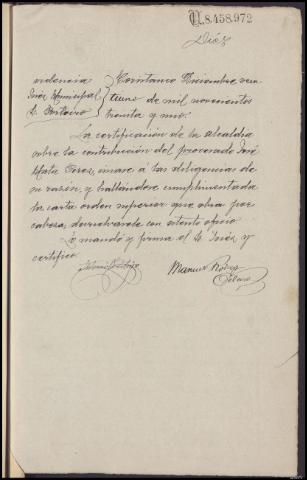 N.8.458.972
Diez
videncia
Juez Municipal
Sr.
Diciembre vein
tiuno de mil novecientos
treinta y uno.
La certificación de la alcaldia
sobre la contribución del procesado José
Mata Perez, unase á las diligencias de
su razón, y hallandose cumplimentada
la carta orden superior que obra por
cabeza, devuelvase con atento oficio.
Lo mandó y firma el Sr. Juez y
certifico.
Manuel